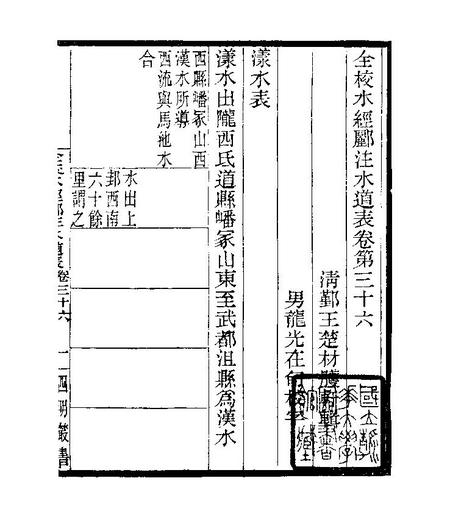 全校水經酈注水道表卷第三十六
清鄞王楚材
男龍光在
漾水表
漾水出隴西氐道縣嶓冢山東至武都沮縣爲漢水
西縣嶓冢山西
漢水所導
西流與馬池水
合
水出上
邽西南
六十餘
里謂之
水道表卷三十六
四明叢書